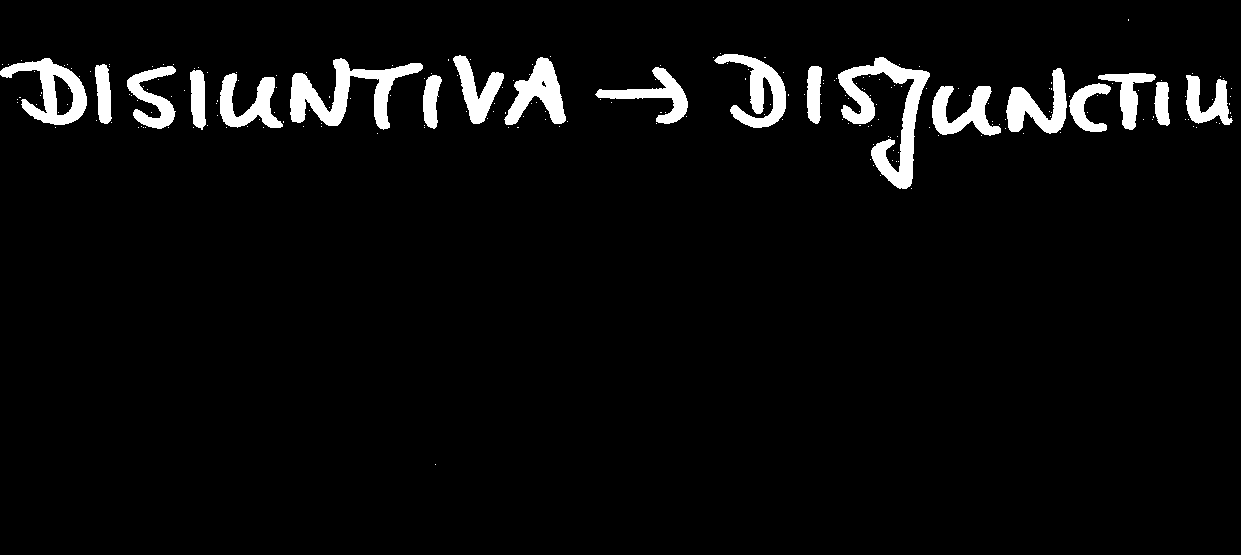 DISIUNTIVA → DISJUNCTIU